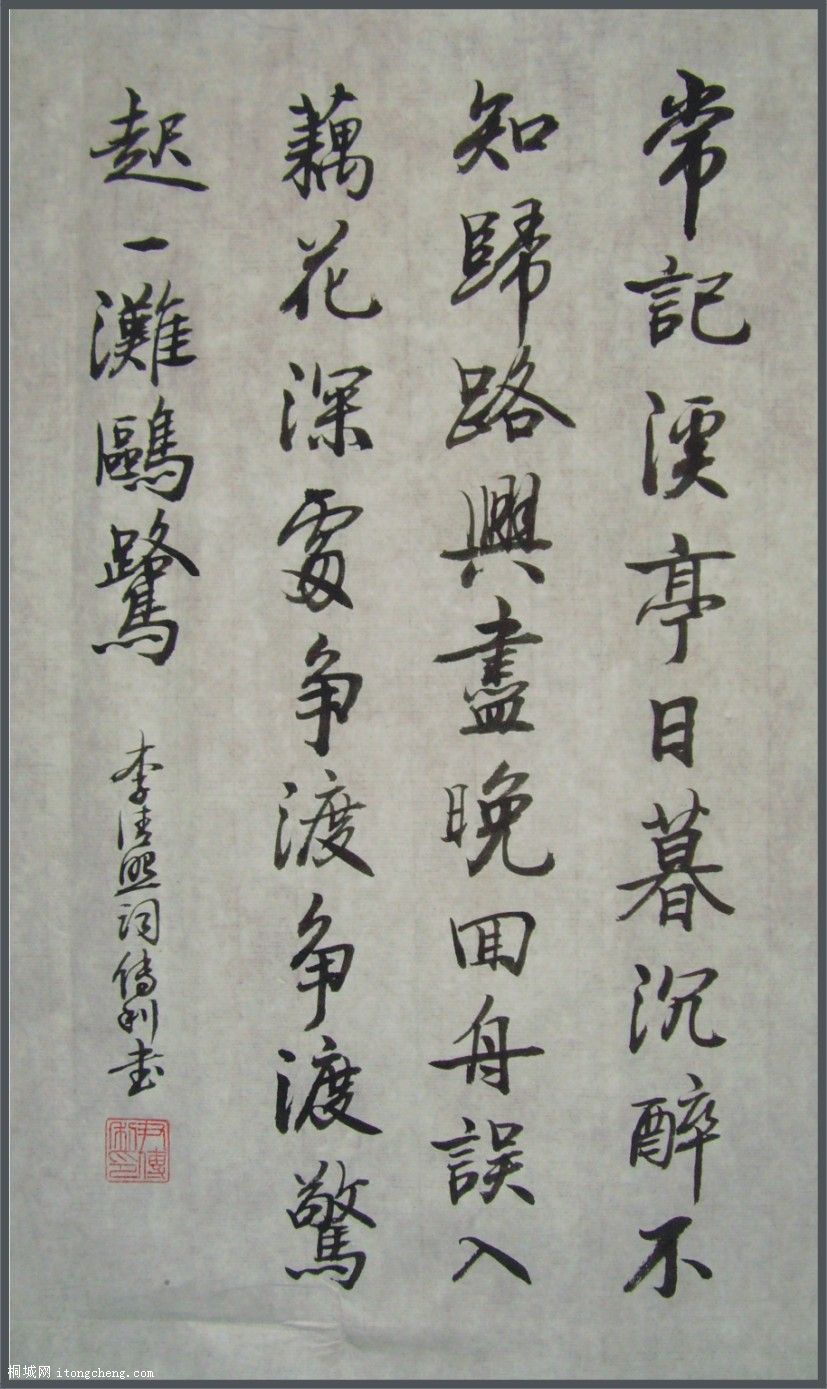 常記溪亭日暮沉醉不
知歸路興盡晚回舟誤入
藕花深處争渡争渡驚
起一灘鷗鷺
李清照詞傳利書
尹傳利印
桐城网 itongcheng.com